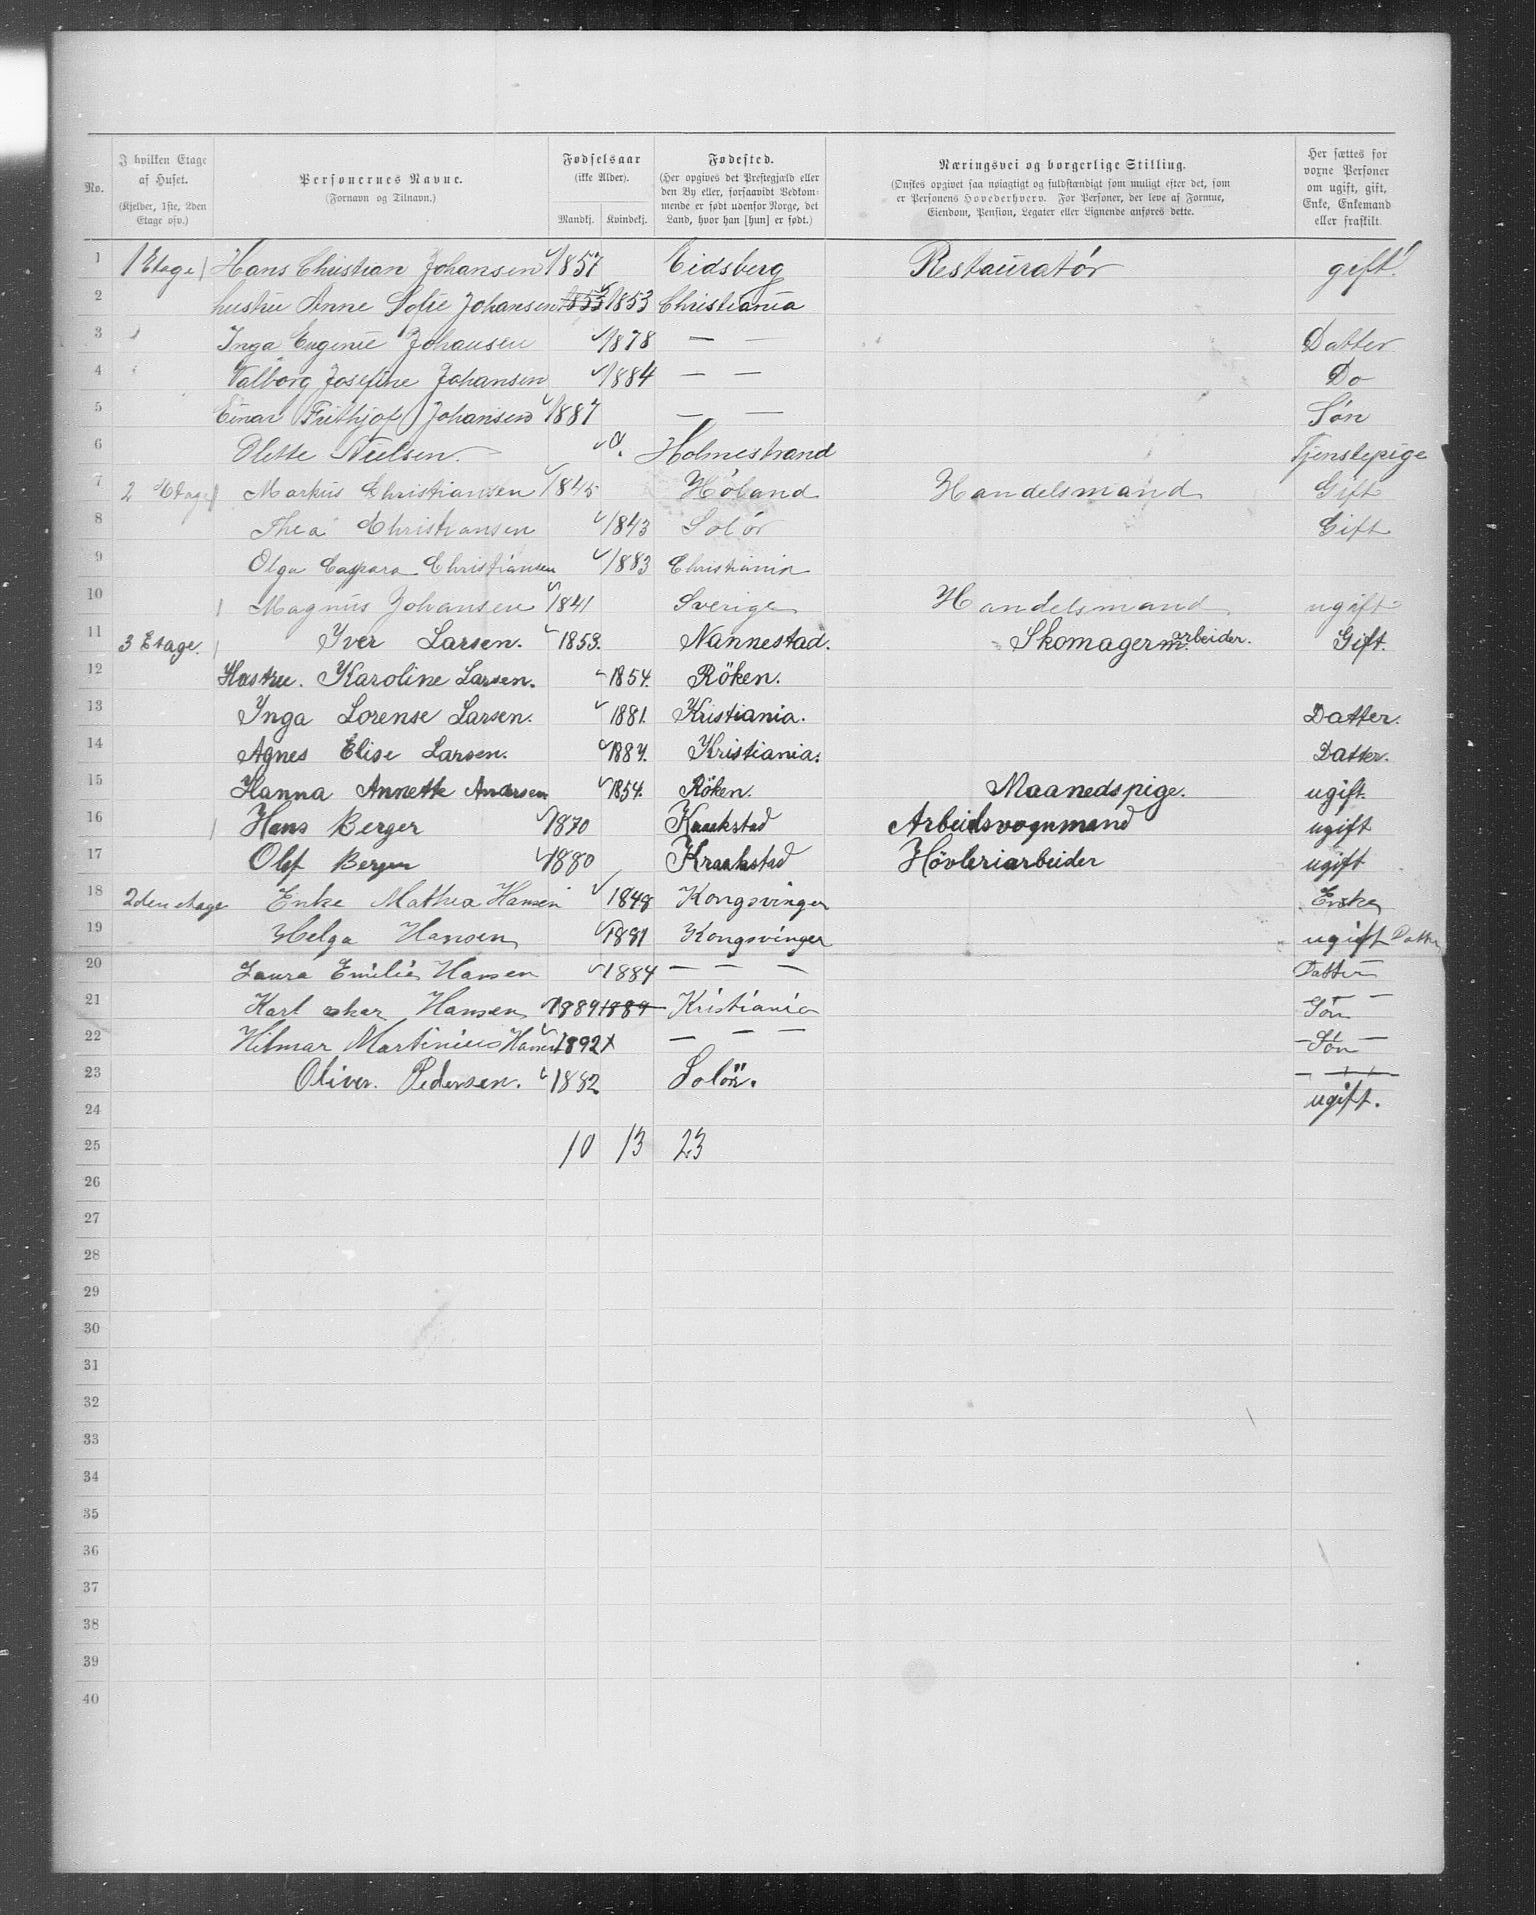 No.
I hvilken Etage af Huset.
(Kjelder, 1ste, 2den Etage osv.)
Personernes Navne.
(Fornavn og Tilnavn.)
Fødselsaar
(ikke Alder).
Mandkj. Kvindekj.
Fødested.
(Her opgives det Prestegjæld eller den By eller, forsaavidt Vedkommende er født udenfor Norge, det Land, hvor han [hun] er født.)
Næringsvei og borgerlige Stilling.
(Ønskes opgivet saa nøiagtigt og fuldstændigt som muligt efter det, som er Personens Hovederhverv. For Personer, der leve af Formue, Eiendom, Pension, Legater eller Lignende anføres dette.
Her sættes for voxne Personer om ugift, gift, Enke, Enkemand eller fraskilt.
1 1 Etage Hans Christian Johansen 1857 Eidsberg Restauratør gift.
2 hustru Anne Sofie Johansen 1853 1853 Christiania
3 Inga Eugenie Johansen 1878 — — Datter
4 Valborg Josefine Johansen 1884 — — Do
5 Einar Frithjof Johansen 1887 — — Søn
6 Olette Nielsen. Holmestrand Tjenstepige
7 2 Etage Markus Christiansen 1845 Høland Handelsmand Gift
8 Thea Christiansen 1843 Solør Gift
9 Olga Caspara Christiansen 1883 Christiania
10 Magnus Johansen 1841 Sverige Handelsmand ugift
11 3 Etage. Iver Larsen. 1853. Nannestad. Skomagerm. arbeider. Gift.
12 Hustru. Karoline Larsen. 1854. Röken.
13 Inga Lorense Larsen. 1881. Kristiania. Datter.
14 Agnes Elise Larsen. 1887. Kristiania. Datter.
15 Hanna Annette Andersen 1854. Röken. Maanedspige. ugift.
16 Hans Berger 1870 Kraakstad Arbeidsvognmand ugift
17 Olof Berger 1880 Kraakstad Hövleriarbeider ugift
18 2den etage Enke Mathea Hansen 1848 Kongsvinger Enke
19 Helga Hansen 1881 Kongsvinger ugift Datter
20 Laura Emilie Hansen 1884 — — — Datter
21 Karl oskar Hansen 1889 1889 Kristiania Søn
22 Hilmar Martinius Hansen 1892 — — — Søn
23 Oliver. Pedersen. 1882 Solör.
24 ugift.
25 10 13 23
26
27
28
29
30
31
32
33
34
35
36
37
38
39
40